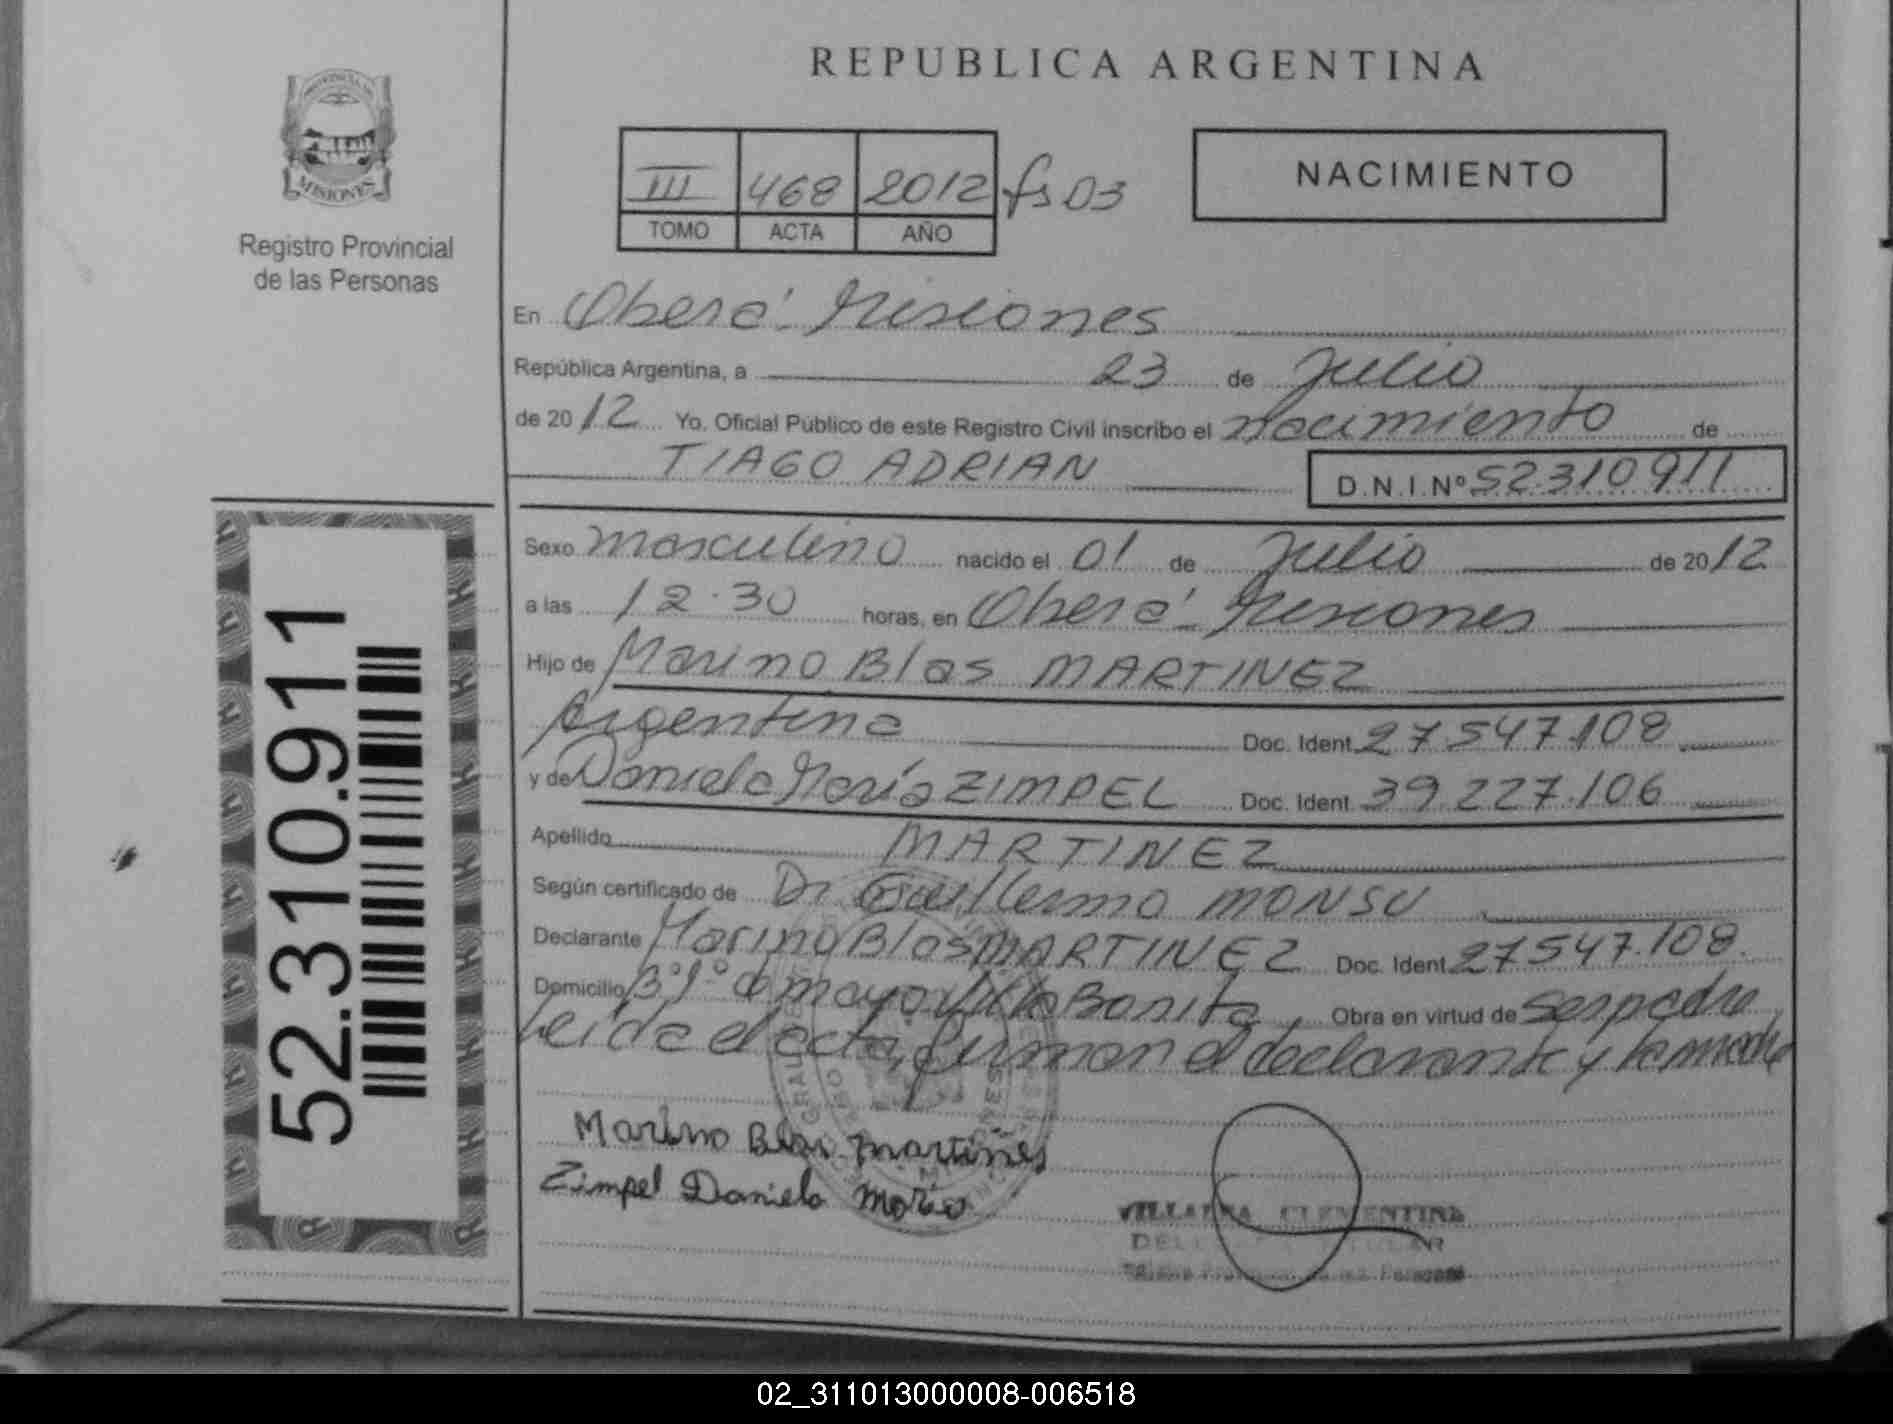 REPUBLICA ARGENTINA
PROVINCIA DE
MISIONES
Registro Provincial
de las Personas
III 468 2012 fs 03
TOMO ACTA AÑO
NACIMIENTO
En Oberá - Misiones
República Argentina, a 23 de Julio
de 2012 Yo. Oficial Público de este Registro Civil inscribo el nacimiento de
TIAGO ADRIAN D.N.I.Nº 52310911
Sexo masculino nacido el 01 de Julio de 2012
a las 12.30 horas, en Oberá - Misiones
Hijo de Marino Blas MARTINEZ
Argentina Doc. Ident. 27.547.108
y de Daniela María ZIMPEL Doc. Ident. 39.227.106
Apellido MARTINEZ
Según certificado de Dr Guillermo MONSU
Declarante Marino Blas MARTINEZ Doc. Ident. 27547.108.
Domicilio Bº 1º d mayo Villa Bonita Obra en virtud de ser padre
Leida el acta, firman el declarante y la madre
Marino Blas martines
Zimpel Daniela Maria
VILLALBA CLEMENTINA
52.310.911
02_311013000008-006518